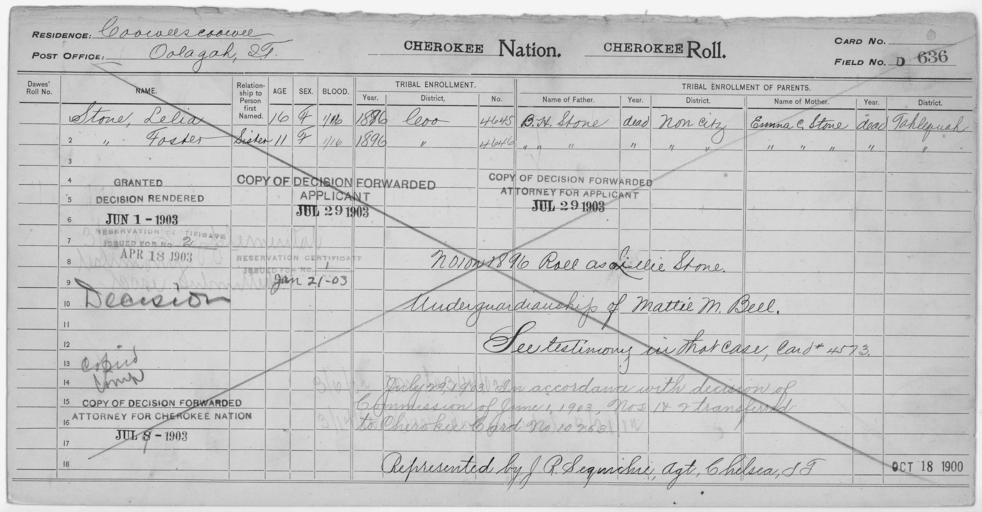 RESIDENCE: Coowescoowee
POST OFFICE: Oolagah, I.T.
CHEROKEE Nation. CHEROKEE Roll.
CARD NO.
FIELD NO. D 636
Dawes' Roll No. NAME. Relationship to Person first Named. AGE SEX. BLOOD. TRIBAL ENROLLMENT. TRIBAL ENROLLMENT OF PARENTS.
Year. District. No. Name of Father. Year. District. Name of Mother. Year. District.
Stone, Lelia 16 F 1/16 1896 Coo 4645 B. H. Stone dead Non Citz Emma C. Stone dead Tahlequah
2 " Foster Sister 11 F 1/16 1896 " 4646 " " " " " " " " " " "
3
4 GRANTED
5 DECISION RENDERED
6 JUN 1-1903
COPY OF DECISION FORWARDED
APPLICANT
JUL 29 1903
COPY OF DECISION FORWARDED
ATTORNEY FOR APPLICANT
JUL 29 1903
RESERVATION CERTIFICATE
7 ISSUED FOR NO. 2
8 APR 18 1903
RESERVATION CERTIFICATE
ISSUED FOR NO. 1
9 Jan 21-03
No 1 on 1896 Roll as Lillie Stone.
10 Decision
Under guardianship of Mattie M. Bell.
11
12 See testimony in that case, Card # 4573.
13
14
July 29, 1903. In accordance with decision of
15 Commission of June 1, 1903, Nos 1 & 2 transferred
to Cherokee Card No.
COPY OF DECISION FORWARDED
16 ATTORNEY FOR CHEROKEE NATION
17 JUL 8-1903
18 Represented by J. P. Sequichie, agt, Chelsea, I T
OCT 18 1900